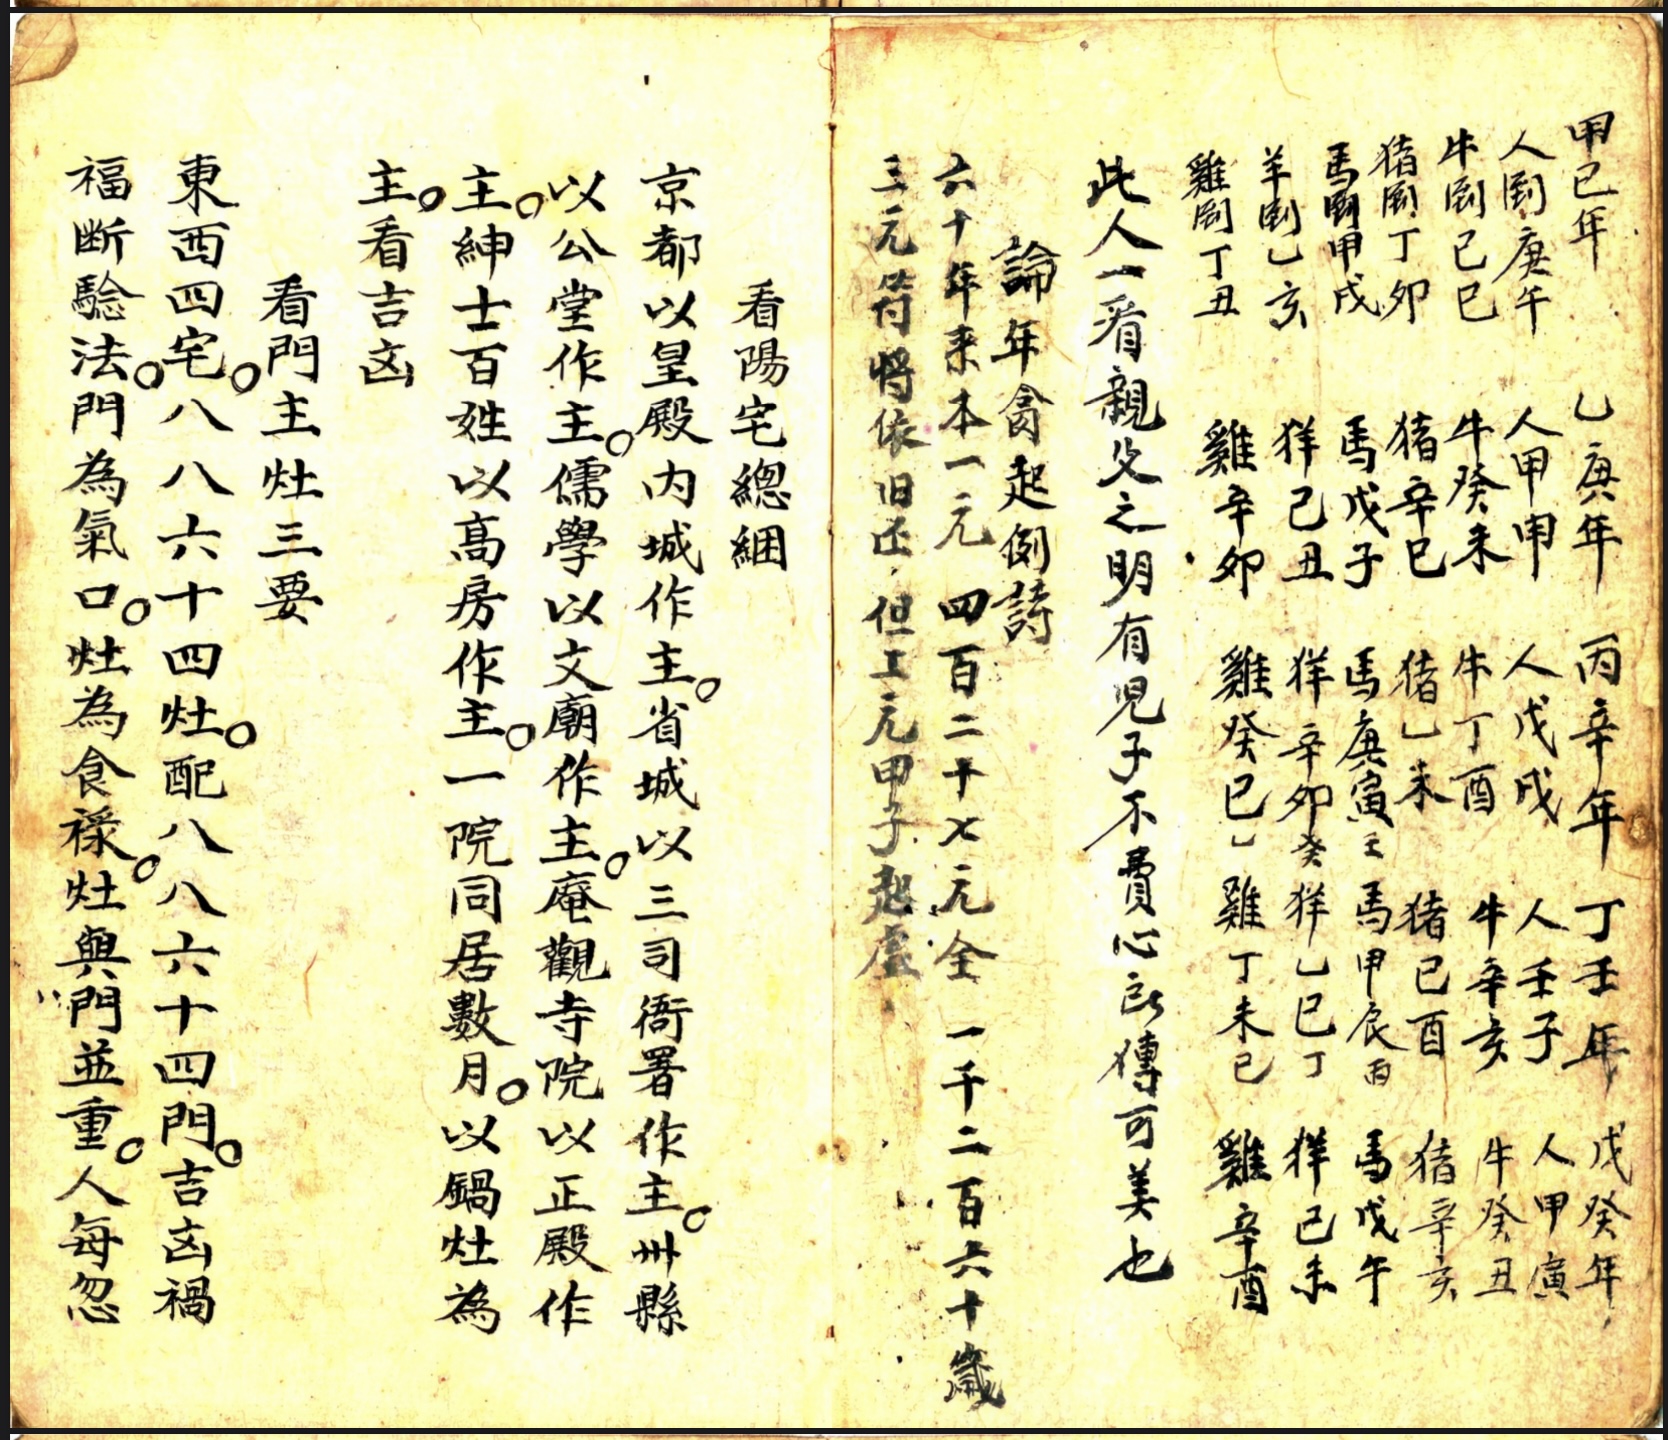 甲己年　乙庚年　丙辛年　丁壬年　戊癸年
人劏庚午　人甲申　人戊戌　人壬子　人甲寅
牛劏己巳　牛癸未　牛丁酉　牛辛亥　牛癸丑
猪劏丁卯　猪辛巳　猪乙未　猪己酉　猪辛亥
馬劏甲戌　馬戊子　馬庚寅壬　馬甲辰丙　馬戊午
羊劏乙亥　羊己丑　羊辛卯癸　羊乙巳丁　羊己未
雞劏丁丑　雞辛卯　雞癸巳乚　雞丁未己　雞辛酉
此人一看親父之明有児子不費心訣傳可美也
論年禽起例詩
六十年来本一元　四百二十七元全　一千二百六十歲
三元符將依旧还　但工元甲子起虛
看陽宅總綑
京都以皇殿内城作主省城以三司衙署作主卅縣
以公堂作主儒學以文廟作主庵觀寺院以正殿作
主紳士百姓以高房作主一院同居數月以鍋灶為
主看吉凶
看門主灶三要
東西四宅八八六十四灶配八八六十四門吉凶禍
福断驗法門為氣口灶為食祿灶與門並重人每忽